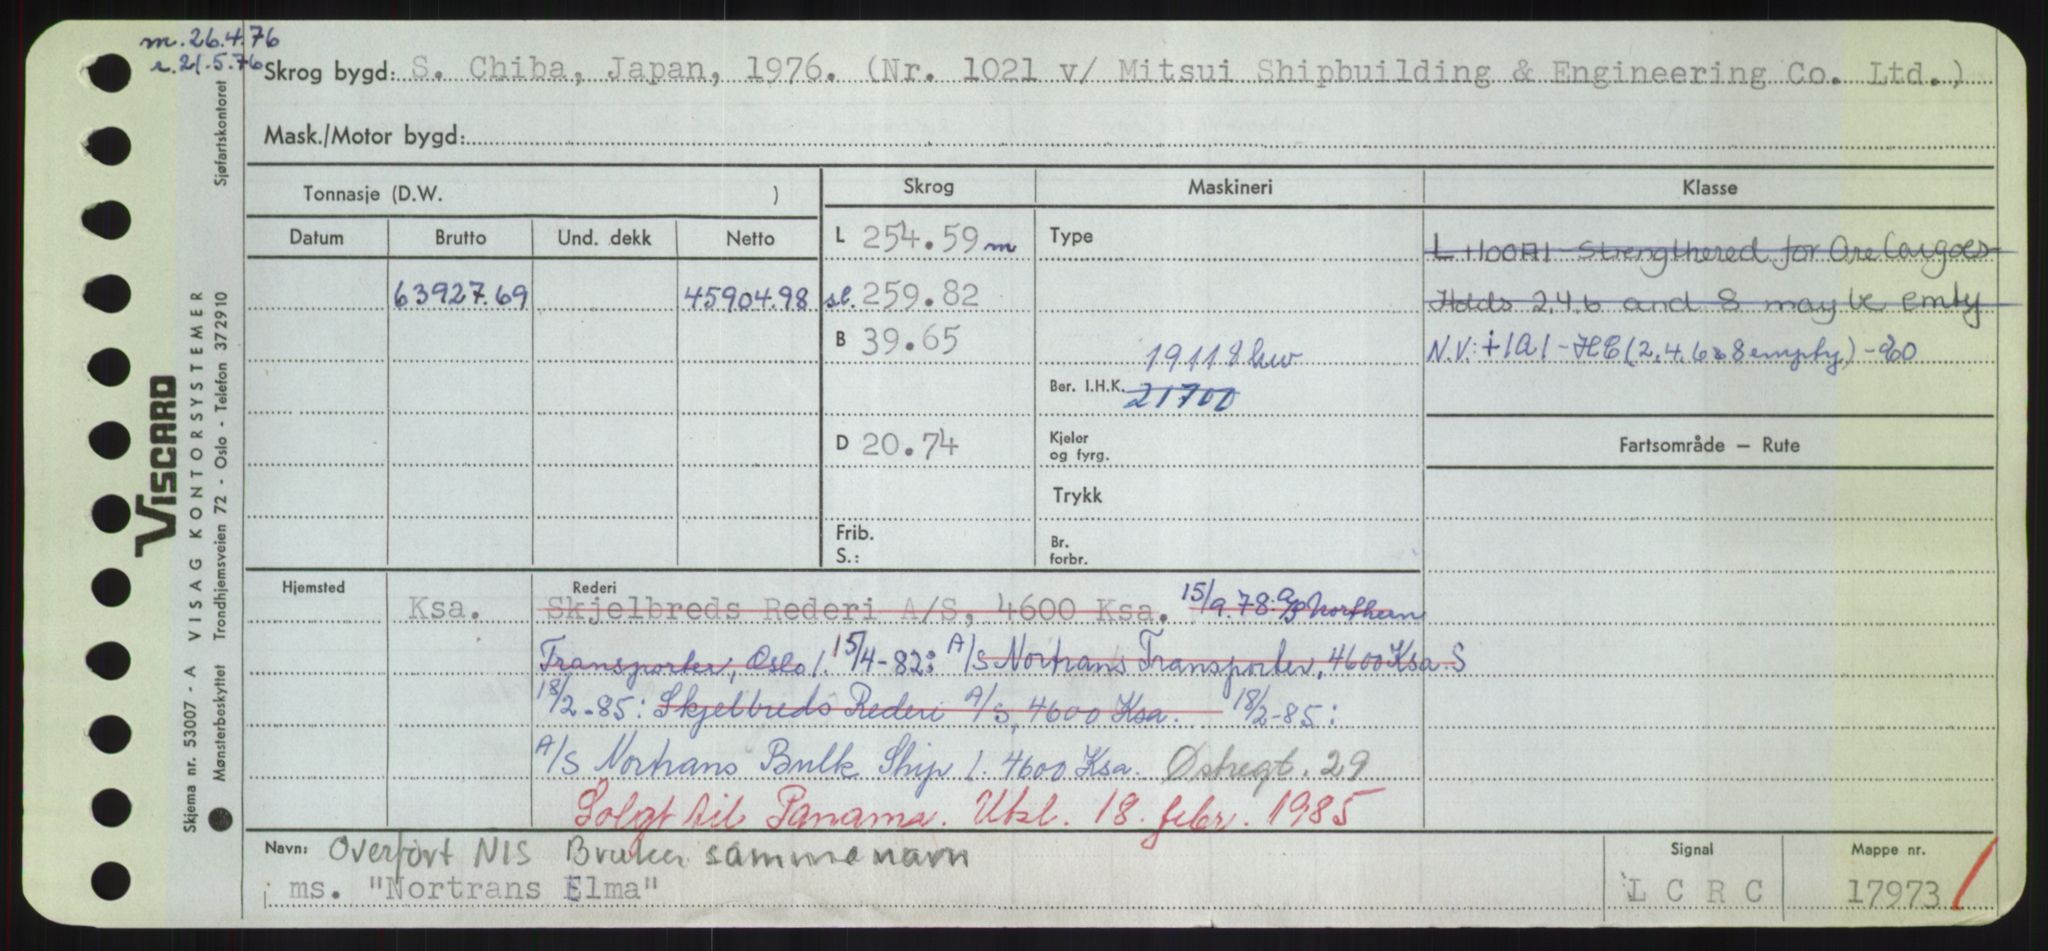 m. 26.4.76
r. 21.5.76
Skrog bygd: S. Chiba, Japan, 1976. (Nr. 1021 v/ Mitsui Shipbuilding & Engineering Co. Ltd.)
Mask./Motor bygd:
Tonnasje (D.W. )
Skrog Maskineri Klasse
Datum Brutto Und. dekk Netto
L 254.59 m Type
L +100A1 Strengthened for Ore Cargoes
63927.69 45904.98 sl. 259.82
Holds 2.4.6 and 8 may be emty
B 39.65 19118 kw
N.V: +1A1 - HC (2.4.6 8 empty)
Ber. I.H.K. 21700
D 20.74 Kjeler og fyrg.
Fartsområde — Rute
Trykk
Frib. S.: Br. forbr.
Hjemsted Rederi
Ksa. Skjelbreds Rederi A/S, 4600 Ksa. 15/9.78: A/S Northern
Transporter, Oslo 1. 15/4-82: A/S Nortrans Transporter, 4600 Ksa. S
18/2-85: Skjelbreds Rederi A/S, 4600 Ksa. 18/2-85:
A/S Nortrans Bulk Ship 1. 4600 Ksa. Østregt. 29
Solgt til Panama. Utsl. 18. febr. 1985
Navn: Overført NIS Bruker samme navn
Signal Mappe nr.
ms. "Nortrans Elma" L C R C 17973 /
VISCARD
Skjema nr. 53007 - A VISAG KONTORSYSTEMER
Mønsterbeskyttet Trondhjemsveien 72 - Oslo - Telefon 372910 Sjøfartskontoret